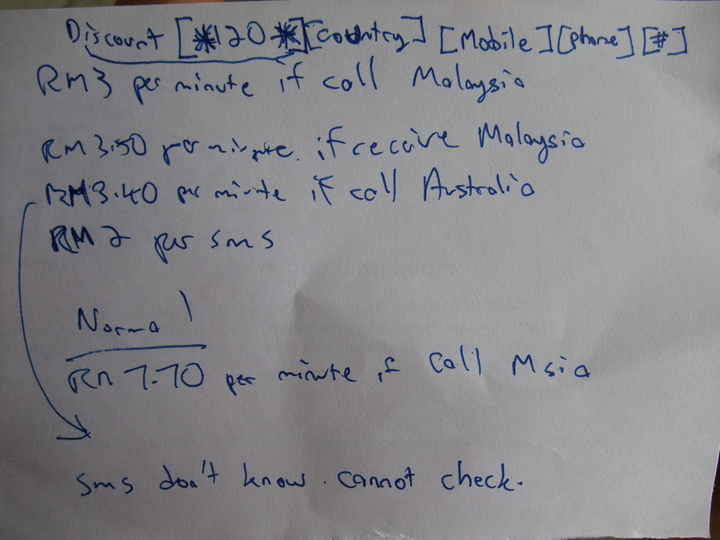 Discount [*120*][country] [Mobile][phone][#]
RM3 per minute if call Malaysia
RM3.50 per minute. if receive Malaysia
RM3.40 per minute if call Australia
RM2 per sms
Normal
RM 7.70 per minute if call Msia
sms don't know. cannot check.